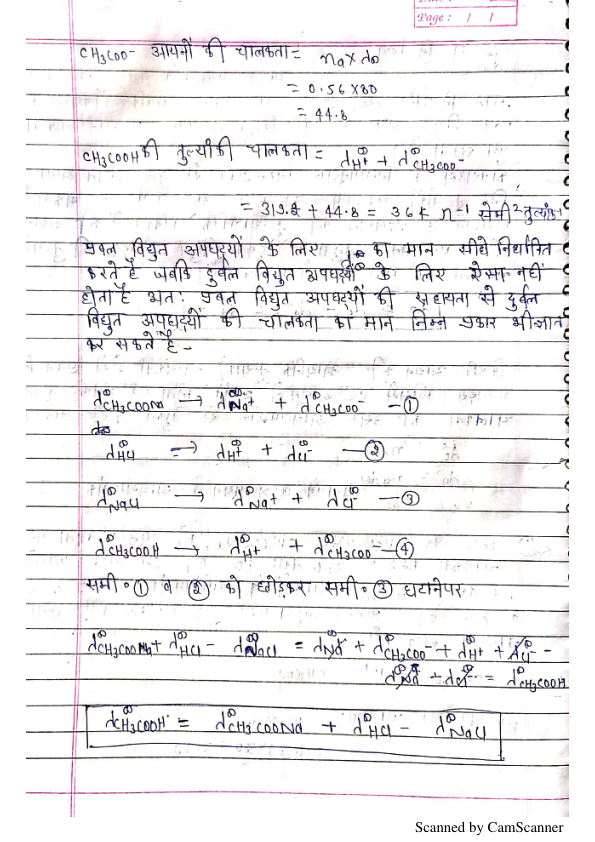 Page : 1 1
CH3COO- आयनों की चालकता = na x d∞
= 0.56 x 80
= 44.8
CH3COOH की तुल्यांकी चालकता = d∞H+ + d∞CH3COO-
= 319.2 + 44.8 = 364 n-1 सेमी2 तुल्यांक-1
प्रबल विद्युत अपघट्यों के लिए d∞ का मान सीधे निर्धारित
करते है जबकि दुर्बल विद्युत अपघट्यों के लिए ऐसा नही
होता है अतः प्रबल विद्युत अपघट्यों की सहायता से दुर्बल
विद्युत अपघट्यों की चालकता का मान निम्न प्रकार भी ज्ञात
कर सकते है -
d∞CH3COONa → d∞Na+ + d∞CH3COO- — ①
d∞HCl → d∞H+ + d∞Cl- — ②
d∞NaCl → d∞Na+ + d∞Cl- — ③
d∞CH3COOH → d∞H+ + d∞CH3COO- — ④
समी० ① व ② को छोड़कर समी० ③ घटानेपर
d∞CH3COONa + d∞HCl - d∞NaCl = d∞Na+ + d∞CH3COO- + d∞H+ + d∞Cl- -
d∞Na+ - d∞Cl- = d∞CH3COOH
d∞CH3COOH = d∞CH3COONa + d∞HCl - d∞NaCl
Scanned by CamScanner